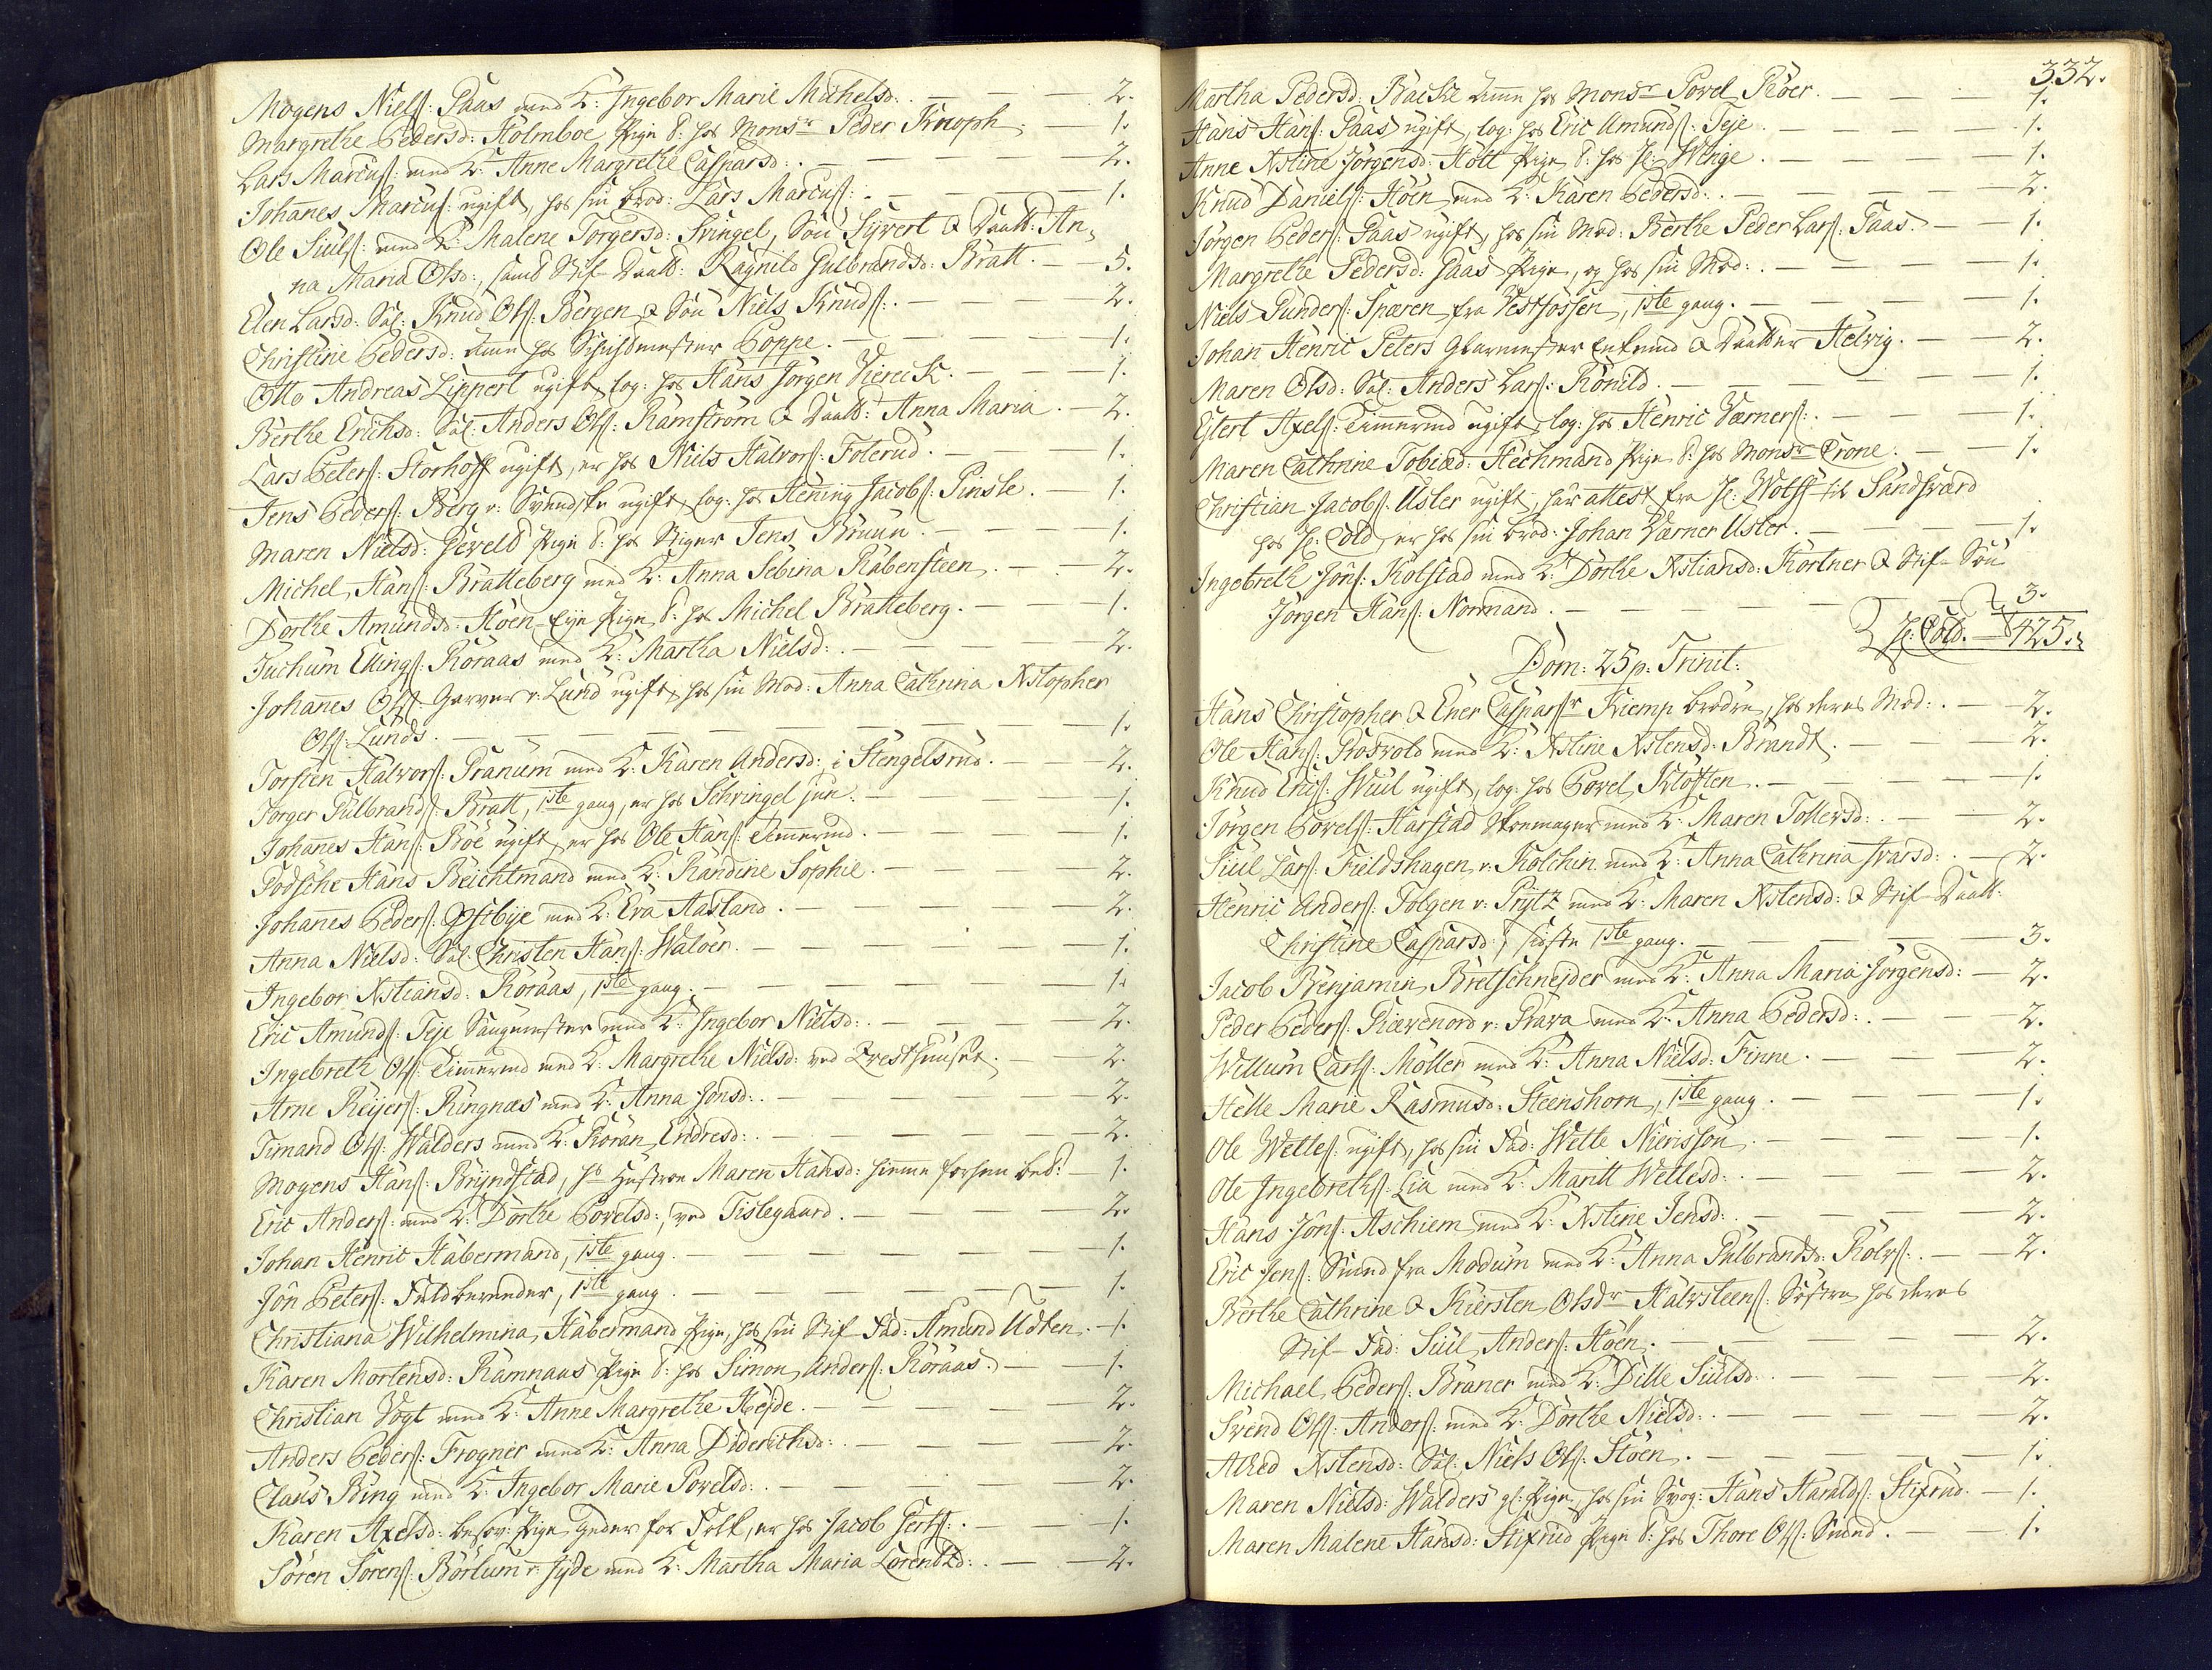 Mogens Niels: Paas med K: Ingebor Marie Michelsd: . — — 2.
Margrethe Pedersd: Holmboe Pige T: hos Monsr Peder Knoph. 1.
Lars Marcus: med K: Anne Margrethe Caspersd: . — — — 2.
Johanes Marcus: ugift, hos sin Brod: Lars Marcus: . — — — 1.
Ole Siuls: med K: Malene Torgersd: Svingel, Sön Syvert & Daatt: An,
na Maria Olsd:, samt Stif-Daatt: Ragnild Gulbrandsd: Bratt. — 5.
Elen Larsd: Sal: Knud Ols: Bergen & Sön Niels Knuds: . — — 2.
Christine Pedersd: Amme hos Poppe. — — — 1.
Otto Andreas Lippert ugift, log: hos Hans Jörgen Viereck. — — 1.
Berthe Erichsd: Sal: Anders Ols: Ramström & Daatt: Anna Maria. — 2.
Lars Peters: Storhoff ugift, er hos Niels Halvors: Foterud. — — 1.
Jens Peders: Berg v: Svendske ugift, log: hos Hening Jacobs: Pinsle. — 1.
Maren Nielsd: Geveld Pige T: hos Stiger Jens Bruun. — — — 1.
Michel Hans: Bratteberg med K: Anna Sebina Rabensteen. — — 2.
Dorthe Amundsd: Hoen Pige T: hos Michel Bratteberg. — — 1.
Juchum Ellings: Röraas med K: Martha Nielsd: . — — — 2.
Johanes Ols: Garver v: Lund ugift, hos sin Mod: Anna Cathrina Xstopher
Ols: Lunds. — — — — — — 1.
Torsten Halvors: Pranum med K: Karen Andersd: i Stengelsrud. — 2.
Jörger Gulbrands: Bratt, 1ste gang, er hos Schvingel jun: . — — 1.
Johanes Hans: Böe ugift, er hos Ole Hans: Timermd. — — — 1.
Godsche Hans Beichtmand med K: Randine Sophie. — — — 2.
Johanes Peders: Östbye med K: Eva Aasland. — — — 2.
Anna Nielsd: Sal: Christen Hans: Waloer. — — — 1.
Ingebor Xstiansd: Röraas, 1ste gang. — — — 1.
Eric Amunds: Teje Saugmester med K: Ingebor Nielsd: . — — 2.
Ingebreth Ols: Timermd med K: Margrethe Nielsd: ved — 2.
Arne Reijers: Ringnæs med K: Anna Jonsd: . — — — 2.
Timand Ols: Walders med K: Goran Endresd: . — — — 2.
Mogens Hans: Bryndstad, hs Hustroe Maren Hansd: hiemme forhen bet: — 1.
Eric Anders: med K: Dorthe Povelsd:, ved Tislegaard. — — 2.
Johan Henric Habermand, 1ste gang. — — — 1.
Jon Peters: Fuldbrender, 1ste gang. — — — 1.
Christiana Wilhelmina Habermand Pige, hos sin Stif-Fad: Amund Udten. — 1.
Karen Mortensd: Ramnaas Pige T: hos Simon Anders: Röraas. — — 1.
Christian Vogt med K: Anne Margrethe Heyde. — — — 2.
Anders Peders: Frogner med K: Anna Diderichsd: . — — — 2.
Claus Bing med K: Ingebor Marie Povelsd: . — — — 2.
Karen Axelsd: besov: Pige for Folk, er hos Jacob Gerts: . — — 1.
Sören Sörens: Börlum v: Jyde med K: Martha Maria Lorentzd: . — — 2.
332.
Martha Pedersd: Backe Amme hos Monsr Povel Röer. — — — 1.
Hans Hans: Paas ugift, log: hos Eric Amunds: Teje. — — — 1.
Anne Xstine Jörgensd: Holt Pige T: hos Hr: Winge. — — — 1.
Knud Daniels: Hoen med K: Karen Pedersd: . — — — 2.
Jörgen Peders: Paas ugift, hos sin Mod: Berthe Peder Lars: Paas. — 1.
Margrethe Pedersd: Paas Pige, og hos sin Mod: . — — — 1.
Niels Gunders: Sparen fra Vestfossen, 1ste gang. — — — 1.
Johan Henric Peters Glarmester Enkemd & Daatter Helvig. — — 2.
Maren Olsd: Sal: Anders Lars: Ronild. — — — 1.
Eylert Axels: Timermd ugift, log: hos Henric Værners: . — — 1.
Maren Cathrine Tobiæd: Hechmand Pige T: hos Monsr Crone. — — 1.
Christian Jacobs: Usler ugift, har attest fra Hr: Wolff til Sandsværd
hos Hr: Cold, er hos sin Brod: Johan Værner Usler. — — — 1.
Ingebreth Jons: Kolstad med K: Dorthe Xstiansd: Kortner & Stif-Sön
Jörgen Hans: Normand. — — — — 3.
Hr: Cold. — 425.
Dom: 25 p: Trinit:
Hans Christopher & Ener Casparsr Kiemp Brödre, hos deres Mod: . — 2.
Ole Hans: Rosvold med K: Xstine Xstensd: Brandt. — — 2.
Knud Erics: Wiul ugift, log: hos Povel Klöften. — — — 1.
Jörgen Povels: Harstad Skomager med K: Maren Tollevsd: . — — 2.
Siul Lars: Fieldshagen v: Kolchin med K: Anna Cathrina Ivarsd: . — 2.
Henric Anders: Folgen v: Prytz med K: Maren Xstensd: & Stif-Daatt:
Christine Caspersd:, sidste 1ste gang. — — — — 3.
Jacob Benjamin Bretschneider med K: Anna Maria Jörgensd: — 2.
Peder Peders: Kiærenord v: Prava med K: Anna Pedersd: . — — 2.
Willum Carls: Möller med K: Anna Nielsd: Finne. — — — 2.
Helle Marie Rasmusd: Steenshorn, 1ste gang. — — — 1.
Ole Wettes: ugift, hos sin Fad: Wette Nierisson. — — — 1.
Ole Ingebreths: Lia med K: Maritt Wettesd: . — — — 2.
Hans Jons: Aschiem med K: Xstine Jensd: . — — — 2.
Eric Jens: Smed fra Modum med K: Anna Gulbrandsd: Rolvs: . — 2.
Berthe Cathrine & Kiersten Olsdr Halvsteens: Söstre, hos deres
Stif-Fad: Siul Anders: Hoen. — — — — 2.
Michael Peders: Braner med K: Dille Siulsd: . — — — 2.
Svend Ols: Anders: med K: Dorthe Nielsd: . — — — 2.
Alhed Xstensd: Sal: Niels Ols: Stoen. — — — 1.
Maren Nielsd: Walders gl: Pige, hos sin Svog: Hans Haralds: Stifrud. — 1.
Maren Malene Hansd: Stifrud Pige T: hos Thore Ols: Smed. — — 1.